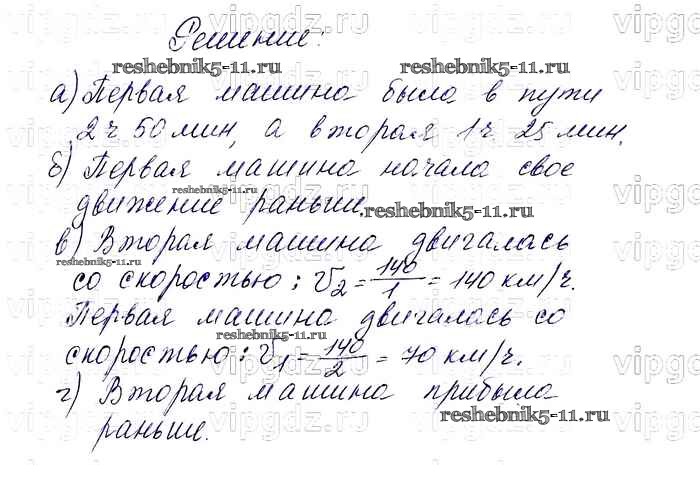 vipgdz.ru vipgdz.ru vipgdz.ru vipgdz.ru
Решение:
reshebnik5-11.ru reshebnik5-11.ru
а) Первая машина была в пути
2 ч 50 мин, а вторая 1 ч 25 мин.
б) Первая машина начала свое
reshebnik5-11.ru
движение раньше.
reshebnik5-11.ru
в) Вторая машина двигалась
reshebnik5-11.ru
со скоростью: V₂ = 140/1 = 140 км/ч.
Первая машина двигалась со
reshebnik5-11.ru
скоростью: V₁ = 140/2 = 70 км/ч.
г) Вторая машина прибыла
reshebnik5-11.ru
раньше.